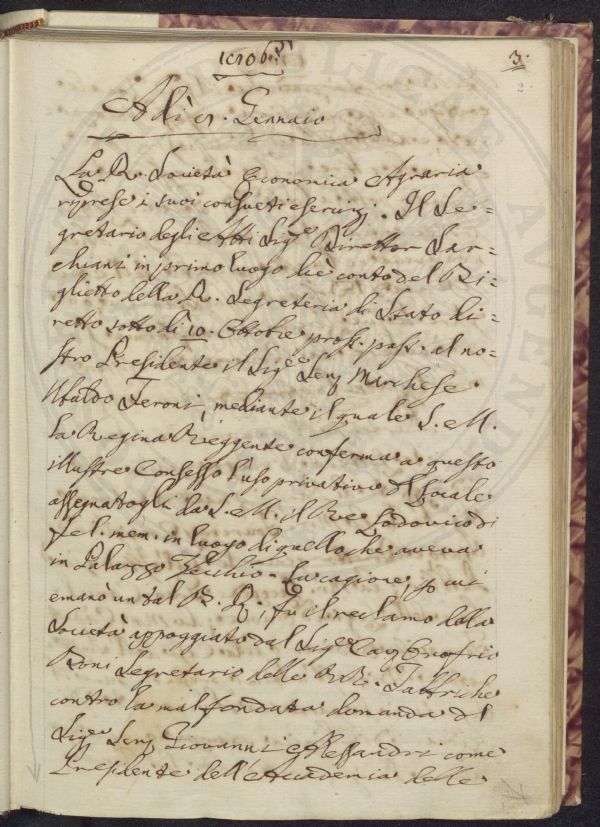 3.
2
Adì 9. Gennaio
La R. Società Economica Agraria
riprese i suoi consueti esercizj. Il Se=
gretario degli Atti Sig.e Direttor Sar=
chiani in primo luogo diè conto del Bi=
glietto della R. Segreteria di Stato di=
retto sotto dì 10. Ottobre pross. pass. al no=
stro Presidente il Sig.e Sen. Marchese
Ubaldo Feroni, mediante il quale S. M.
la Regina Reggente conferma a questo
illustre Consesso l'uso privativo del locale
assegnatogli da S. M. il Re Lodovico di
fel. mem. in luogo di quello che aveva
in Palazzo Vecchio. La cagione, p. cui
emanò un tal B. R., fu il reclamo della
Società appoggiato dal Sig.e Cav. Onofrio
Boni Segretario delle RR. Fabbriche
contro la mal fondata domanda del
Sig.e Sen. Giovanni Alessandri come
Presidente dell'Accademia delle